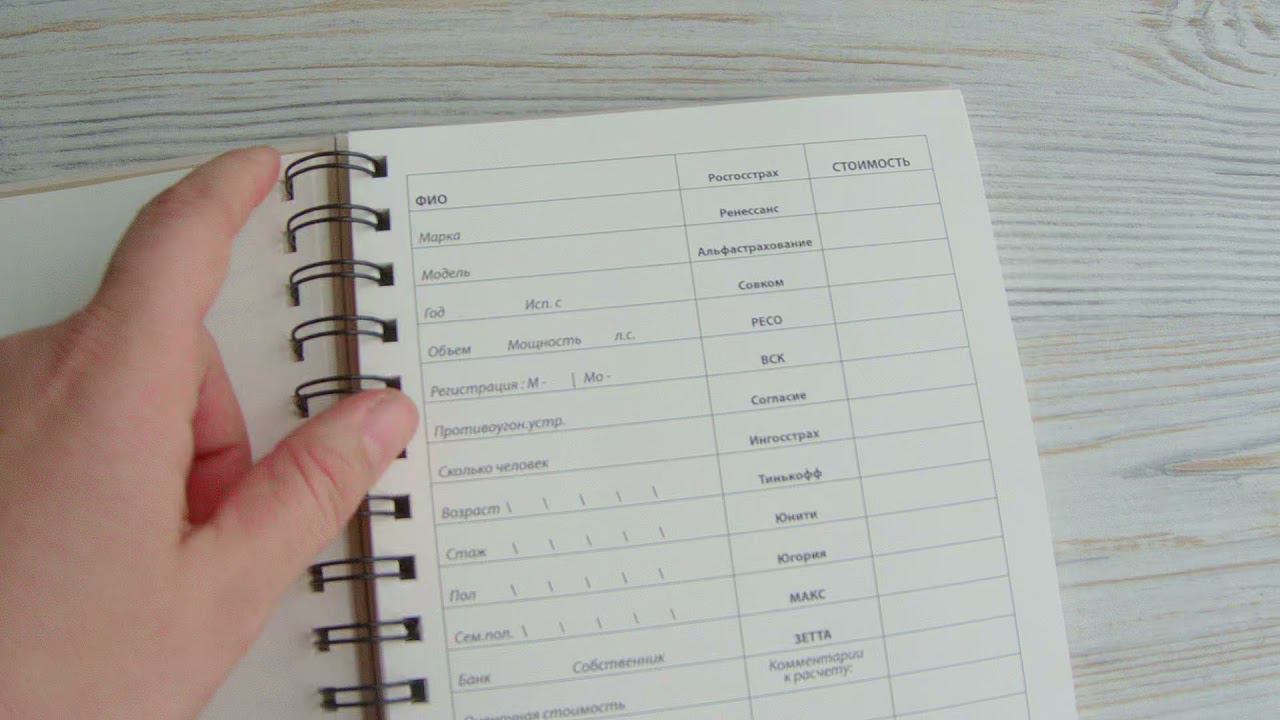 ФИО Росгосстрах СТОИМОСТЬ
Марка Ренессанс
Модель Альфастрахование
Год Исп. с Совком
Объем Мощность л.с. РЕСО
Регистрация : М - | Мо - ВСК
Противоугон.устр. Согласие
Сколько человек Ингосстрах
Возраст \ \ \ \ \ Тинькофф
Стаж \ \ \ \ \ Юнити
Пол \ \ \ \ \ Югория
Сем.пол. \ \ \ \ \ МАКС
Банк Собственник ЗЕТТА
стоимость Комментарии
к расчету: